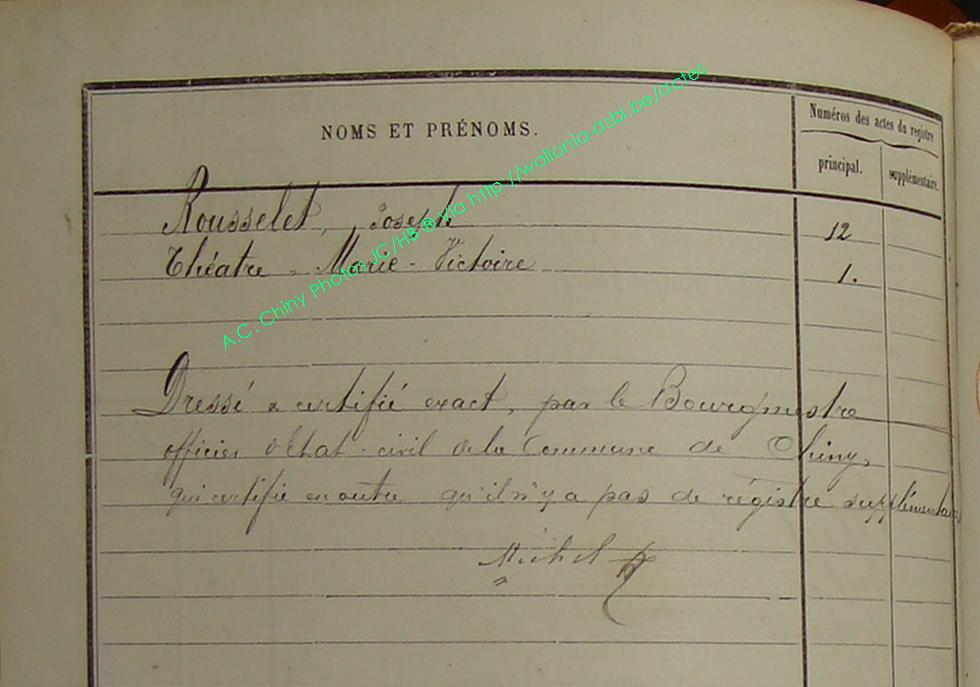 NOMS ET PRÉNOMS.
Numéros des actes du registre
principal.
supplémentaire.
Rousselet, Joseph 12
Théatre - Marie - Victoire 1.
Dressé & certifié exact, par le Bourgmestre
officier d'état-civil de la Commune de Chiny,
qui certifie en outre qu'il n'y a pas de régistre supplémentaire
Michel
A.C. Chiny Photos JC/HB ® via http://wallonia-asbl.be/actes